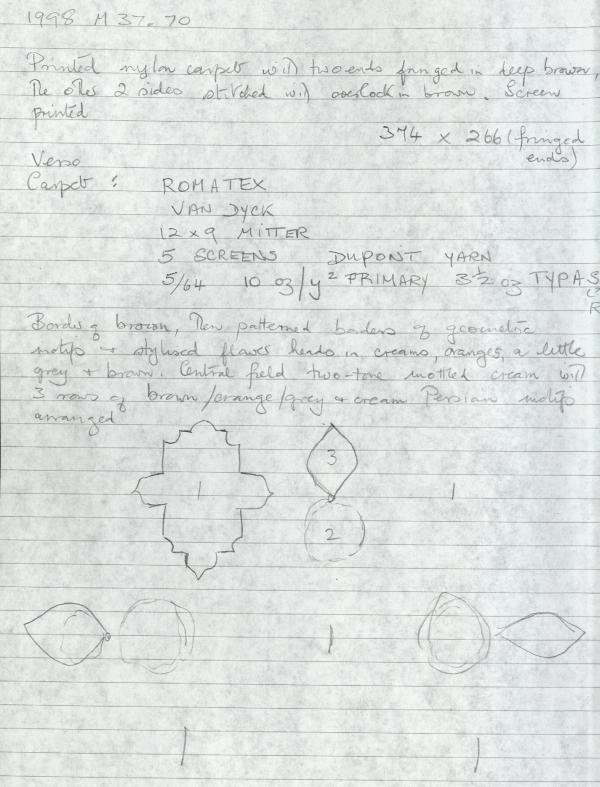 1998 M 37.70
Printed nylon carpet with two ends fringed in deep brown,
The other 2 sides stitched with overlock in brown. Screen
printed
374 x 266 (fringed
ends)
Verso
Carpet : ROMATEX
VAN DYCK
12 x 9 MITTER
5 SCREENS DUPONT YARN
5/64 10 oz/y² PRIMARY 3½ oz TYPAS
R
Border of brown, then patterned borders of geometric
motifs + stylised flower heads in creams, oranges, a little
grey + brown. Central field two-tone mottled cream with
3 rows of brown/orange/grey + cream Persian motifs
arranged
1
3
2
1
1
1
1